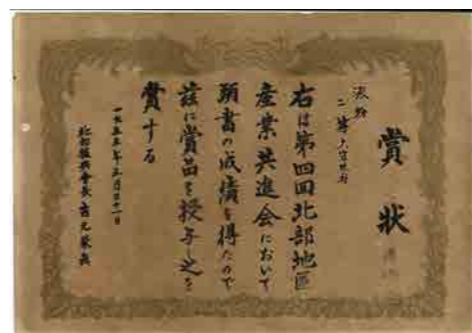 賞状
二等
右は第四回北部地区
産業共進会において
頭書の成績を得たので
茲に賞品を授与し之を
賞する
一九五五年三月二十一日
北部振興會長